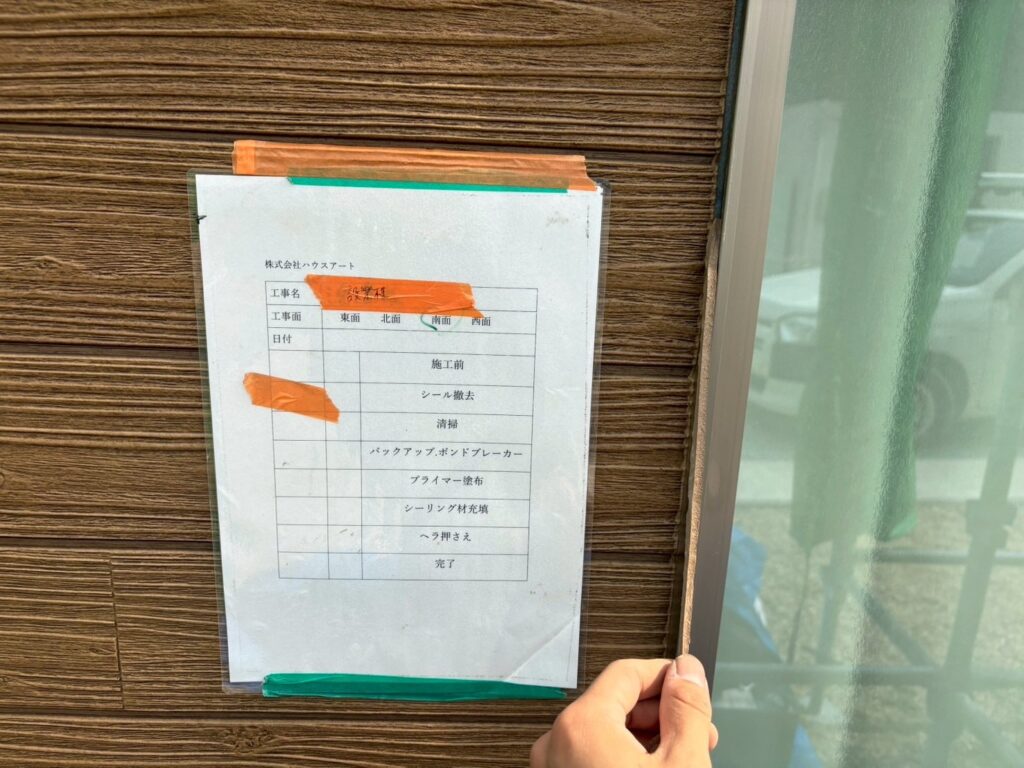 株式会社ハウスアート
工事名 設業様
工事面 東面 北面 南面 西面
日付
施工前
シール撤去
清掃
バックアップ,ボンドブレーカー
プライマー塗布
シーリング材充填
ヘラ押さえ
完了